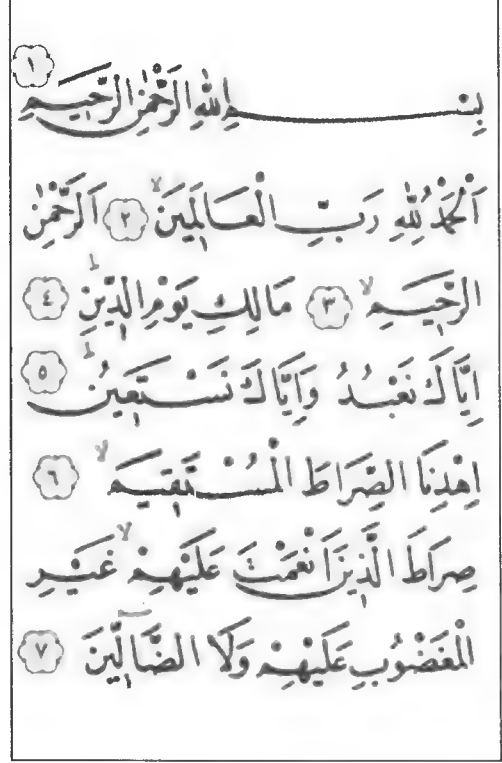 بِسْمِ اللّٰهِ الرَّحْمٰنِ الرَّحِيمِ ١
اَلْحَمْدُ لِلّٰهِ رَبِّ الْعَالَمِينَۙ ٢ اَلرَّحْمٰنِ
الرَّحِيمِۙ ٣ مَالِكِ يَوْمِ الدِّينِۜ ٤
اِيَّاكَ نَعْبُدُ وَاِيَّاكَ نَسْتَعِينُۜ ٥
اِهْدِنَا الصِّرَاطَ الْمُسْتَقِيمَۙ ٦
صِرَاطَ الَّذِينَ اَنْعَمْتَ عَلَيْهِمْۙ غَيْرِ
الْمَغْضُوبِ عَلَيْهِمْ وَلَا الضَّٓالِّينَ ٧